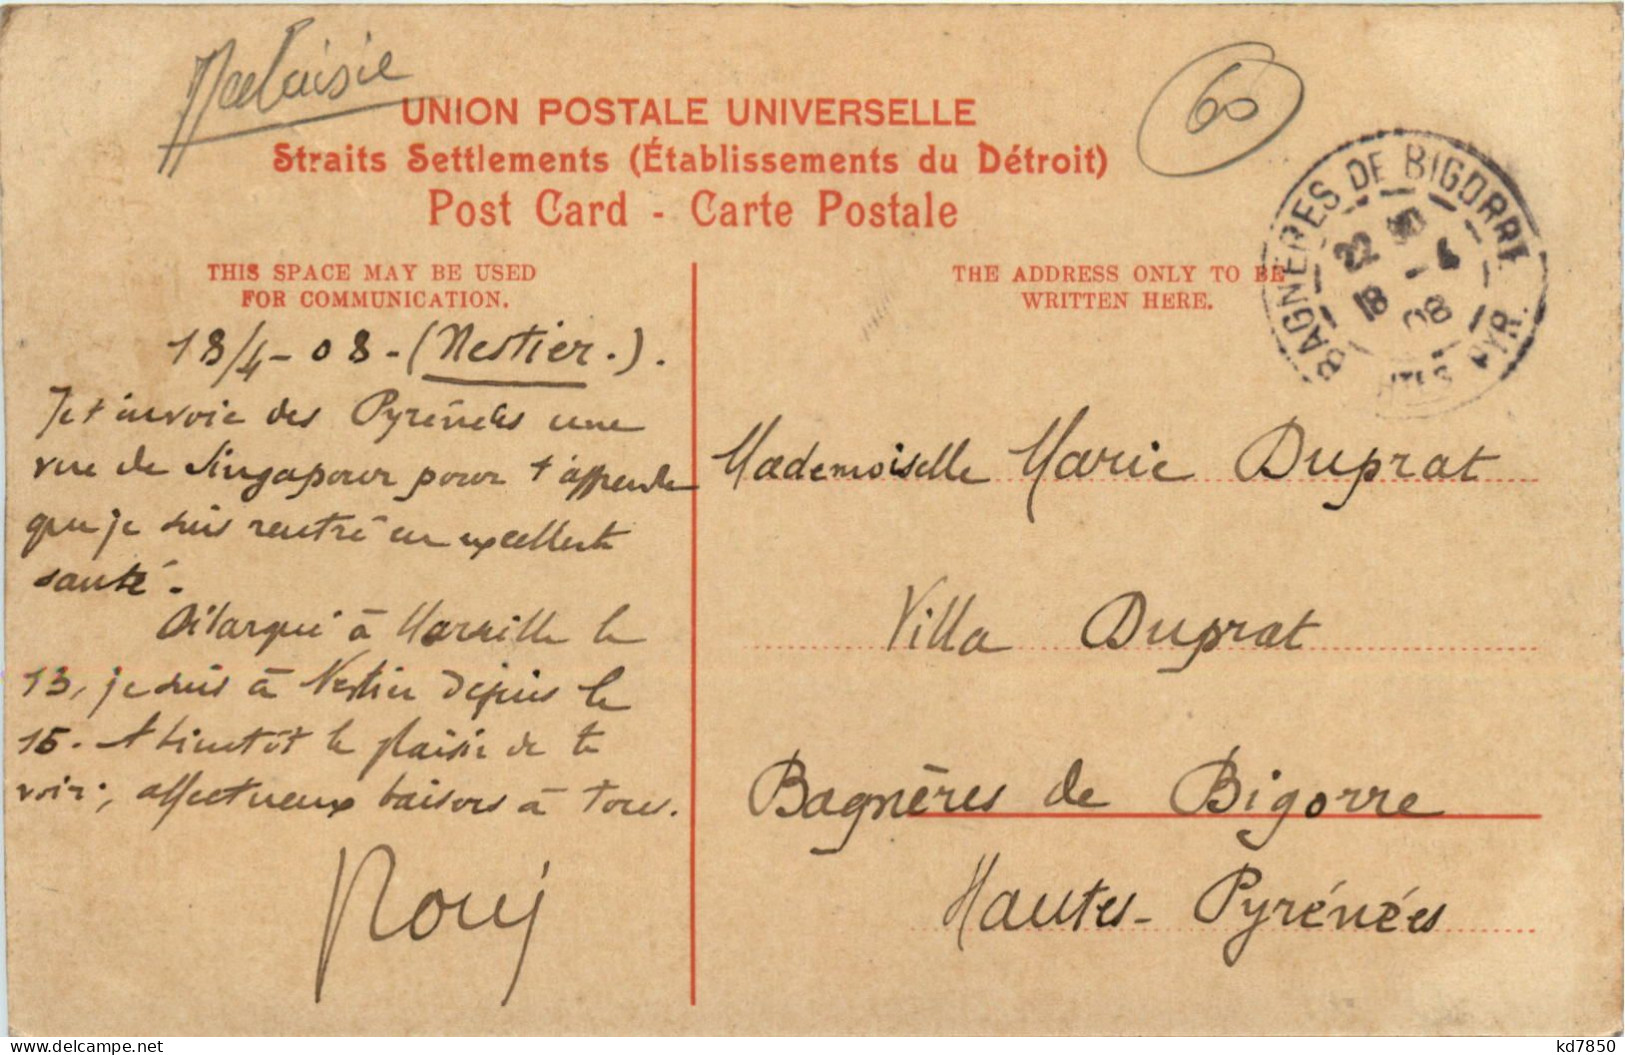 Malaisie
60
UNION POSTALE UNIVERSELLE
Straits Settlements (Établissements du Détroit)
Post Card - Carte Postale
BAGNERES DE BIGORRE
22 30
18 - 4
08
HTES PYR.
THIS SPACE MAY BE USED
FOR COMMUNICATION.
THE ADDRESS ONLY TO BE
WRITTEN HERE.
18/4-08-(Nestier.).
Je t'envoie des Pyrénées une
vue de Singapour pour t'apprendre
que je suis rentré en excellente
santé.
Débarqué à Marseille le
13, je suis à Nestier depuis le
15. A bientôt le plaisir de te
voir; affectueux baisers à tous.
Mademoiselle Marie Duprat
Villa Duprat
Bagnères de Bigorre
Hautes-Pyrénées
kd7850